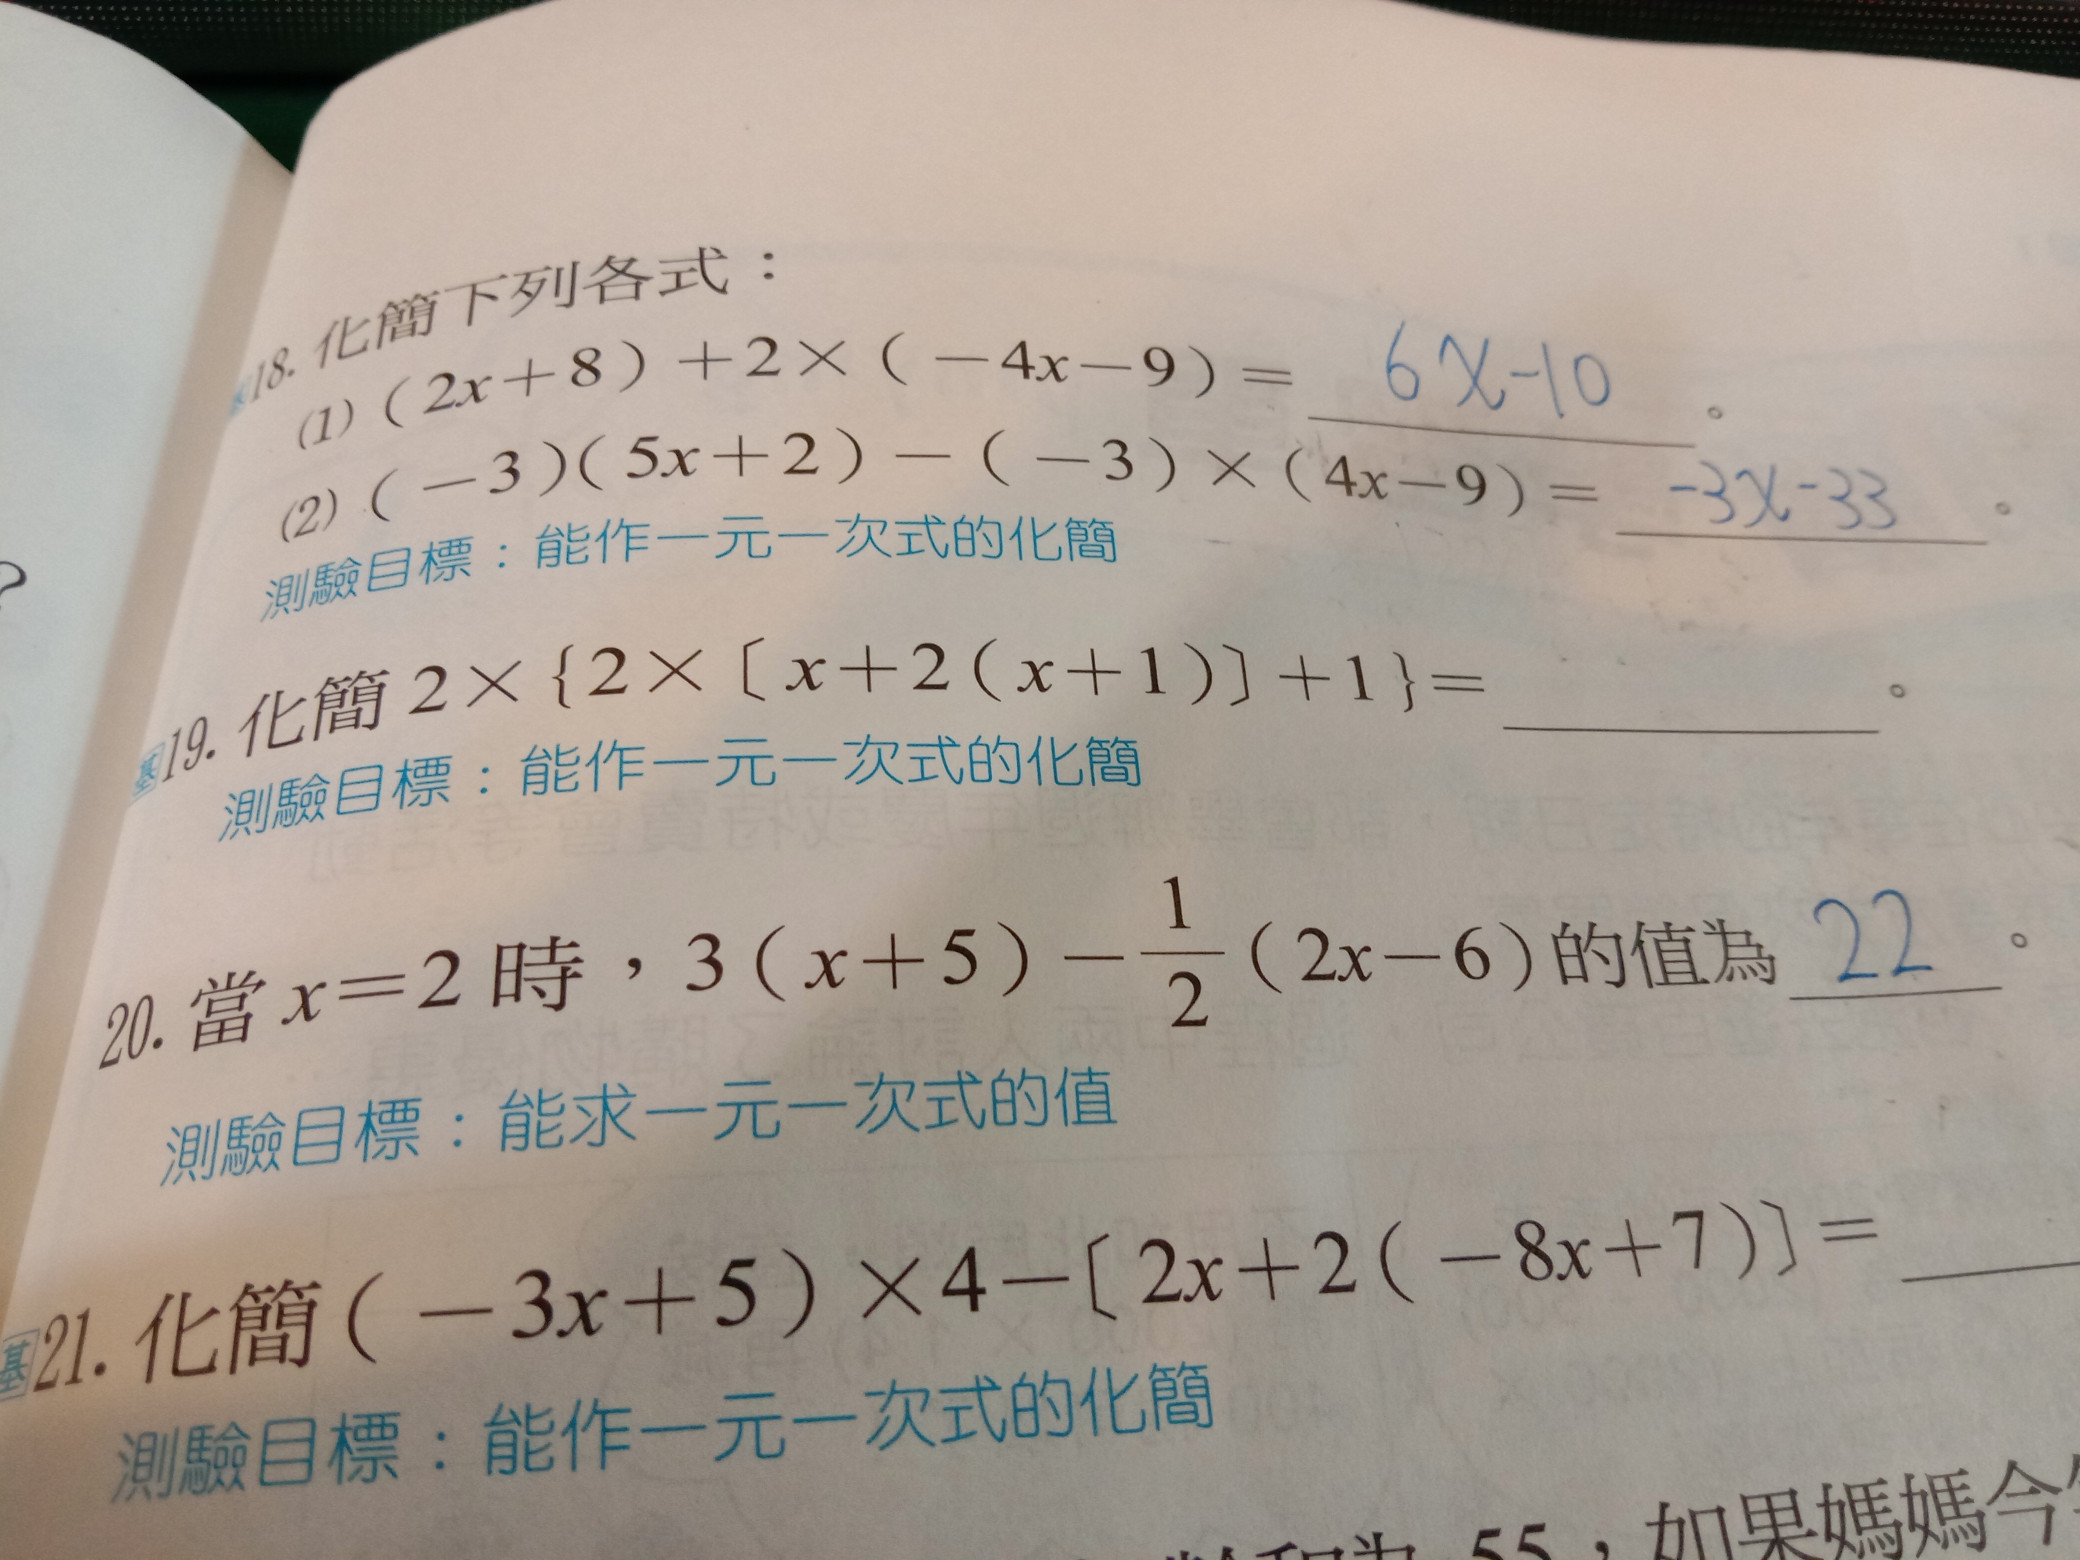 18. 化簡下列各式：
(1) (2x+8)+2×(－4x－9)= 6x-10 。
(2) (－3)(5x+2)－(－3)×(4x－9)= -3x-33 。
測驗目標：能作一元一次式的化簡
基19. 化簡 2×{2×〔x+2(x+1)〕+1}= 。
測驗目標：能作一元一次式的化簡
20. 當 x=2 時，3(x+5)－1/2(2x－6)的值為 22 。
測驗目標：能求一元一次式的值
基21. 化簡(－3x+5)×4－〔2x+2(－8x+7)〕=
測驗目標：能作一元一次式的化簡
55，如果媽媽今